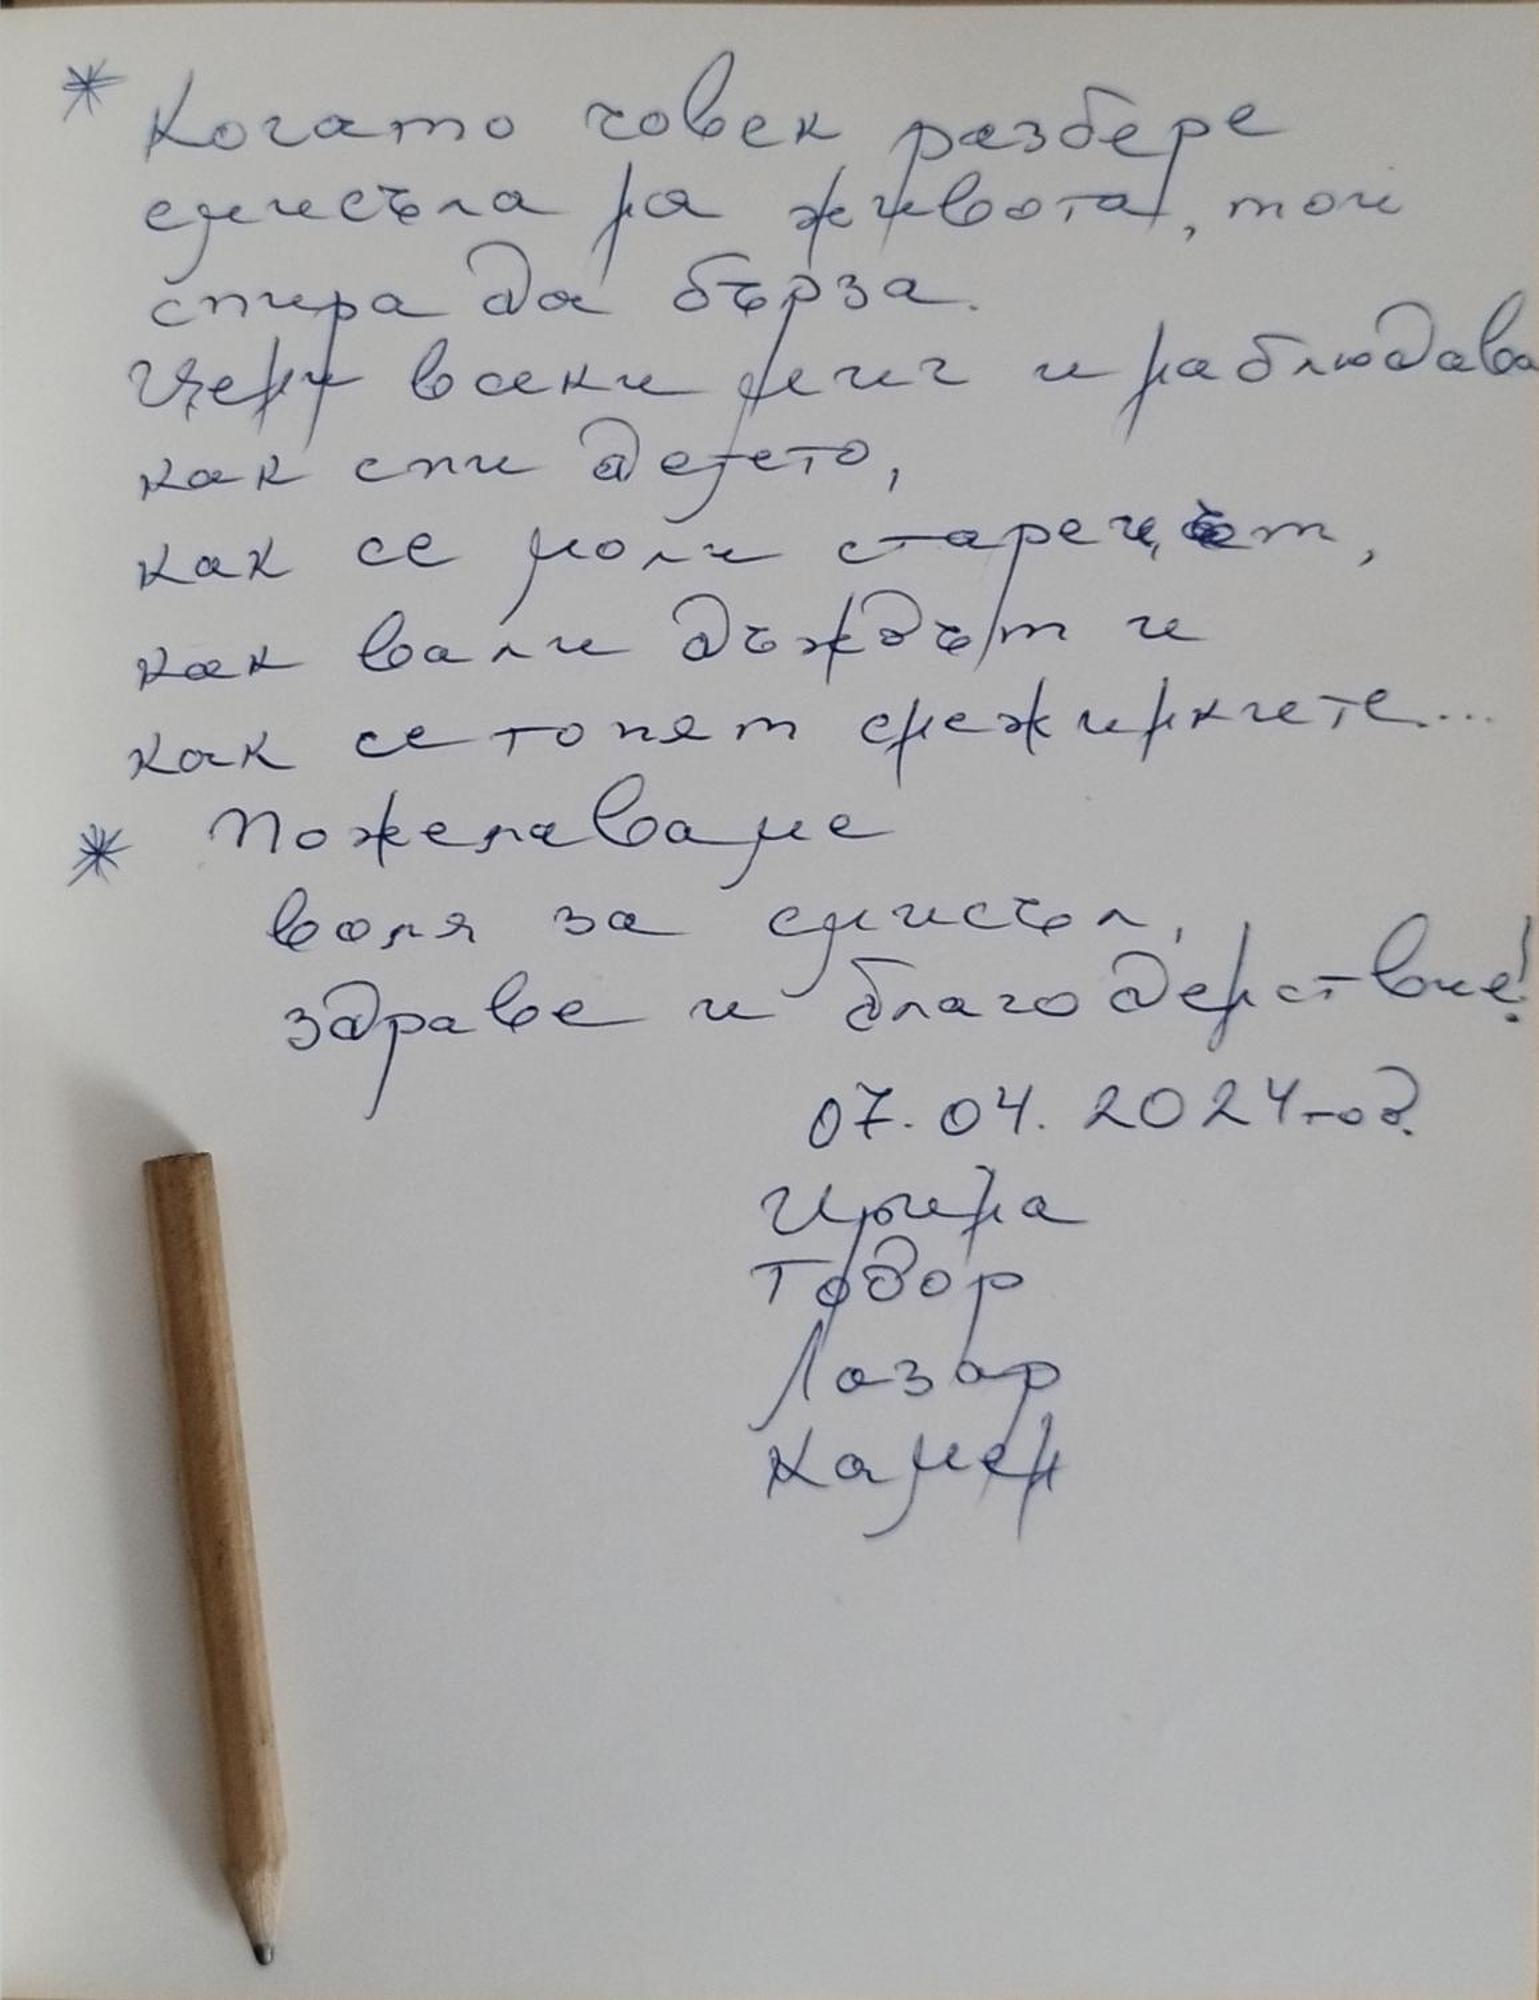 * Когато човек разбере
смисъла на живота, той
спира да бърза.
Цени всеки миг и наблюдава
как спи детето,
как се моли старецът,
как вали дъждът и
как се топят снежинките...
* Пожелаваме
воля за смисъл,
здраве и благоденствие!
07.04.2024 год.
Ирина
Тодор
Лазар
Камен